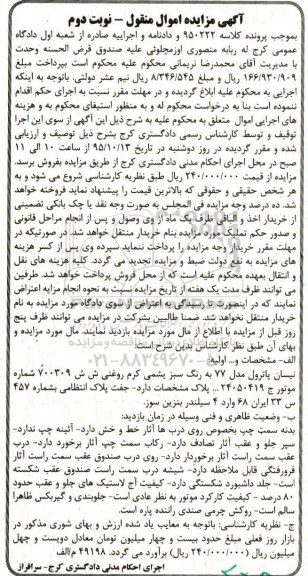 آگهی مزایده اموال منقول – نوبت دوم
بموجب پرونده کلاسه ۹۵۰۲۲۲ و دادنامه و اجراییه صادره از شعبه اول دادگاه
عمومی کرج له ربابه منصوری اوزمچلوئی علیه صندوق قرض الحسنه وحدت
با مدیریت آقای محمدرضا نریمانی محکوم علیه محکوم است بپرداخت مبلغ
۱۶۶/۹۳۰/۹۰۹ ریال و مبلغ ۸/۳۴۶/۵۴۵ ریال نیم عشر دولتی. باتوجه به اینکه
اجرایی به محکوم علیه ابلاغ گردیده و در مهلت مقرر نسبت به اجرای حکم اقدام
ننموده است بنا به درخواست محکوم له و به منظور استیفای محکوم به و هزینه
های اجرایی اموال متعلق به محکوم علیه به شرح ذیل این آگهی از سوی این اجرا
توقیف و توسط کارشناس رسمی دادگستری کرج بشرح ذیل توصیف و ارزیابی
شده و مقرر گردیده در روز دوشنبه در تاریخ ۹۵/۱۰/۱۳ از ساعت ۱۰ الی ۱۱
صبح در محل اجرای احکام مدنی دادگستری کرج از طریق مزایده بفروش برسد.
مزایده از قیمت ۲۴۰/۰۰۰/۰۰۰ ریال طبق نظریه کارشناسی شروع می شود و به
هر شخص حقیقی و حقوقی که بالاترین قیمت را پیشنهاد نماید فروخته خواهد
شد. ده درصد وجه مزایده فی المجلس به صورت وجه نقد یا چک بانکی تضمینی
از خریدار اخذ و الباقی ظرف یک ماه از وی وصول و پس از انجام مراحل قانونی
و صدور حکم تملیک مورد مزایده بنام خریدار منتقل خواهد شد. در صورتیکه در
مهلت مقرر خریدار وجه مزایده را پرداخت ننماید سپرده وی پس از کسر هزینه
های مزایده به نفع دولت ضبط و مزایده تجدید می گردد. کلیه هزینه های نقل
و انتقال بعهده محکوم علیه است که از محل فروش پرداخت خواهد شد. طرفین
می توانند ظرف مدت یک هفته از تاریخ مزایده نسبت به نحوه انجام مزایه اعتراض
نمایند که در اینصورت تا رسیدگی به اعتراض از سوی دادگاه مورد مزایده به نام
خریدار منتقل نخواهد شد. ضمنا طالبین بشرکت در مزایده می توانند ظرف پنج
روز قبل از مزایده با اطلاع از مال مورد مزایده بازدید نمایند. مال مورد مزایده و
بهای آن طبق نظر کارشناس بدین شرح است:
الف- مشخصات و... اولیه:
نیسان پاترول مدل ۷۷ به رنگ سبز یشمی کرم روغنی ش ش ۷۰۰۳۰۹ شماره
موتور ج ۲۴۰۵۰۴۱۹ ... پلاک مشخصات دارد- جفت پلاک انتظامی بشماره ۴۵۷
س ۳۳ ایران ۶۸ وارد ۴ سیلندر بنزین سوز.
ب- وضعیت ظاهری و فنی وسیله در زمان بازدید:
بدنه سمت چپ بخصوص روی درب ها آثار خط و خش دارد- آئینه چپ ندارد-
سپر جلو و عقب آثار تصادف دارد- رکاب سمت چپ آثار برخورد دارد- درب
عقب سمت راست آثار برخوردار دارد- روی درب صندوق عقب سمت راست آثار
فرورفتگی قابل ملاحظه دارد- شیشه درب سمت راست صندوق عقب شکسته
است- جلد داشبورد شکستگی دارد- کیفیت آج لاستیک های جلو و عقب حدود
۸۰ درصد- کیفیت کارکرد موتور به نظر عادی است- جلوبندی و گیربکس ظاهرا
سالم است- روکش چرمی صندی راننده پاره است.
ج- نظریه کارشناسی: باتوجه به معایب یاد شده ارزش و بهای شوری مذکور در
بازار روز فعلی مبلغ حدود بیست و چهار میلیون تومان معادل دویست و چهل
میلیون ریال (۲۴۰/۰۰۰/۰۰۰ ریال) برآورد می گردد. ۴۹۱۹۸ م/الف
اجرای احکام مدنی دادگستری کرج- سرافراز